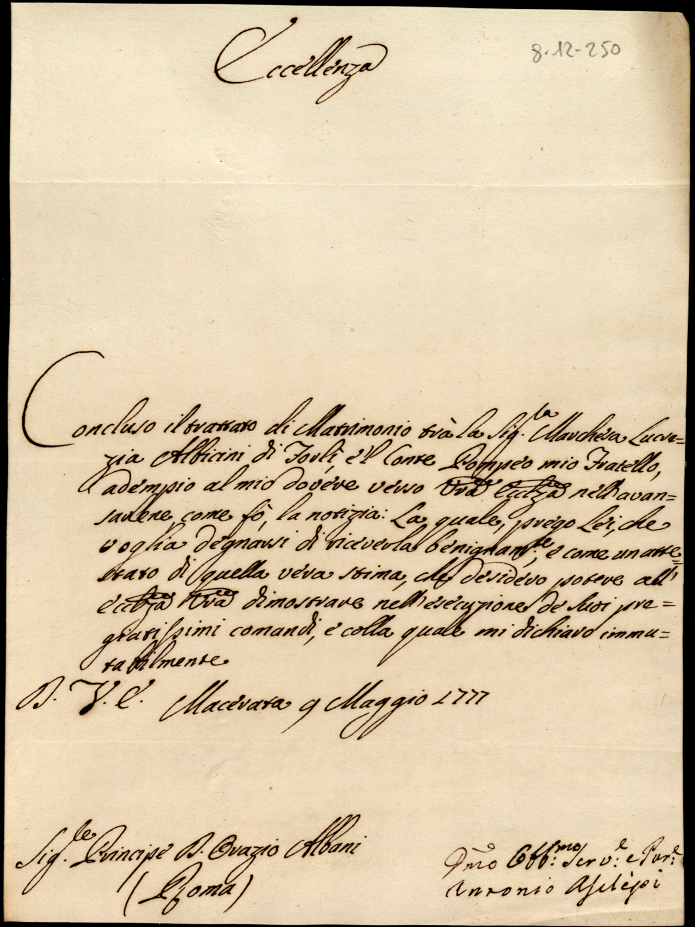 8-12-250
Eccellenza
Concluso il trattato di Matrimonio trà la Sig.la Marchesa Lucre=
zia Albicini di Forlì, e'l Conte Pompeo mio Fratello,
adempio al mio dovere verso Vrā Eccllzā nell'avan=
sarene come fò, la notizia: La quale, prego Lei, che
voglia degnarsi di riceverla benignamte, e come un atte=
stato di quella vera stima, che desidero potere all'
Eccllzā Vrā dimostrare nell'esecuzione de suoi pre=
giatissimi comandi, e colla quale mi dichiaro immu=
tabilmente
D. V. E. Macerata 9 Maggio 1777
Sig.le Principe D. Orazio Albani
(Roma)
Dmo Obb:mo Serv:e e Par:e
Antonio